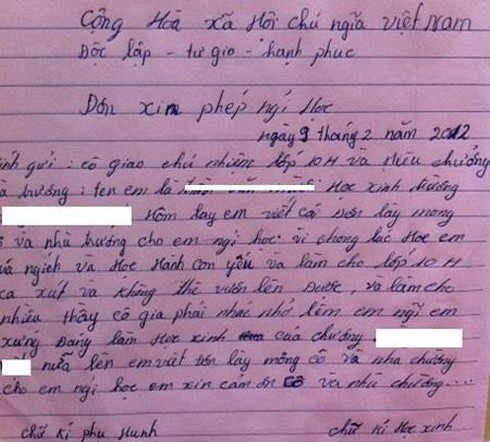 Cộng Hòa xã Hội chủ ngĩa việt Nam
Độc lập - tự gio - hạnh phuc
Đơn xin phép ngỉ Học
ngày 9 tháng 2 năm 2012
ính gửi : cô giao chủ nhiệm lớp 10 H và Hiêu chưởng
a trường : ten em là Học xinh trường
Hôm lay em viết cái Đơn lày mong
và nhà trường cho em ngỉ học vì chong lúc Học em
uá ngịch và Học Hành con yếu và làm cho lớp 10 H
ca xút và không thể vươn lên Được, và làm cho
nhiều thầy cô gia phải nhác nhở lêm em ngĩ em
xưng Đáng làm Học xinh của chưởng
nưa lên em viết Đơn lày mông cô và nha chường
cho em ngỉ học em xin cảm ơn cô và nhà chường....
chữ kí phu Hunh chữ kí Học xinh